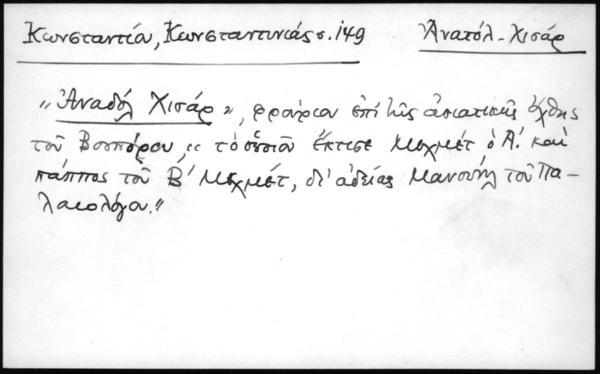 Κωνσταντίου, Κωνσταντινιάς σ. 149
Ἀνατόλ-Χισάρ
„Ἀναδὸλ Χισάρ”, φρούριον ἐπὶ τῆς ἀσιατικῆς ὄχθης
τοῦ Βοσπόρου, „τὸ ὁποῖον ἔκτισε Μεχμέτ ὁ Α΄. καὶ
πάππος τοῦ Β΄ Μεχμέτ, δι' ἀδείας Μανουὴλ τοῦ Πα-
λαιολόγου.”